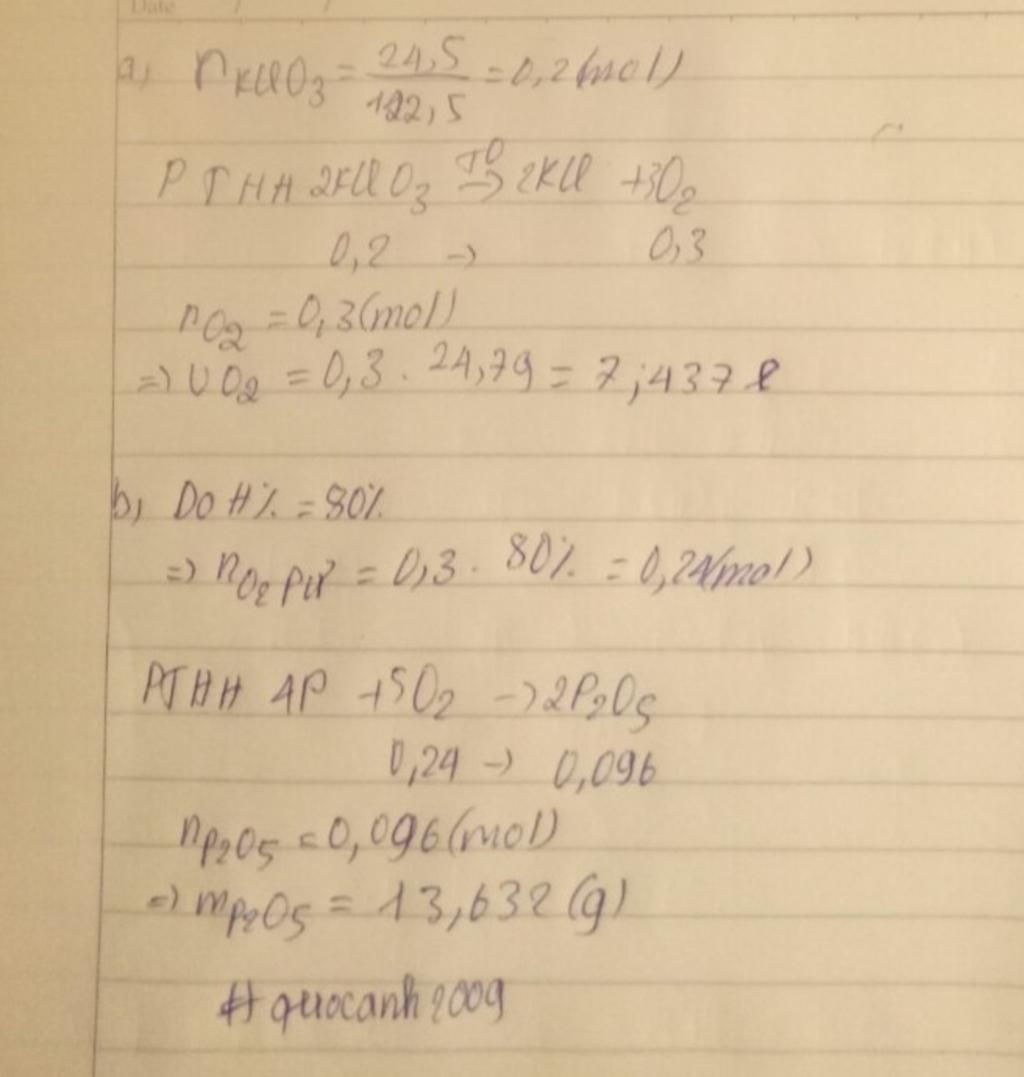 Date / /
a, nKClO3 = 24,5/122,5 = 0,2(mol)
PTHH 2KClO3 T0→ 2KCl +3O2
0,2 → 0,3
nO2 = 0,3(mol)
=) VO2 = 0,3 . 24,79 = 7,437 l
b, Do H% = 80%
=) nO2 pứ = 0,3 . 80% = 0,24(mol)
PTHH 4P +5O2 → 2P2O5
0,24 → 0,096
nP2O5 = 0,096(mol)
=) mP2O5 = 13,632 (g)
# quocanh2009